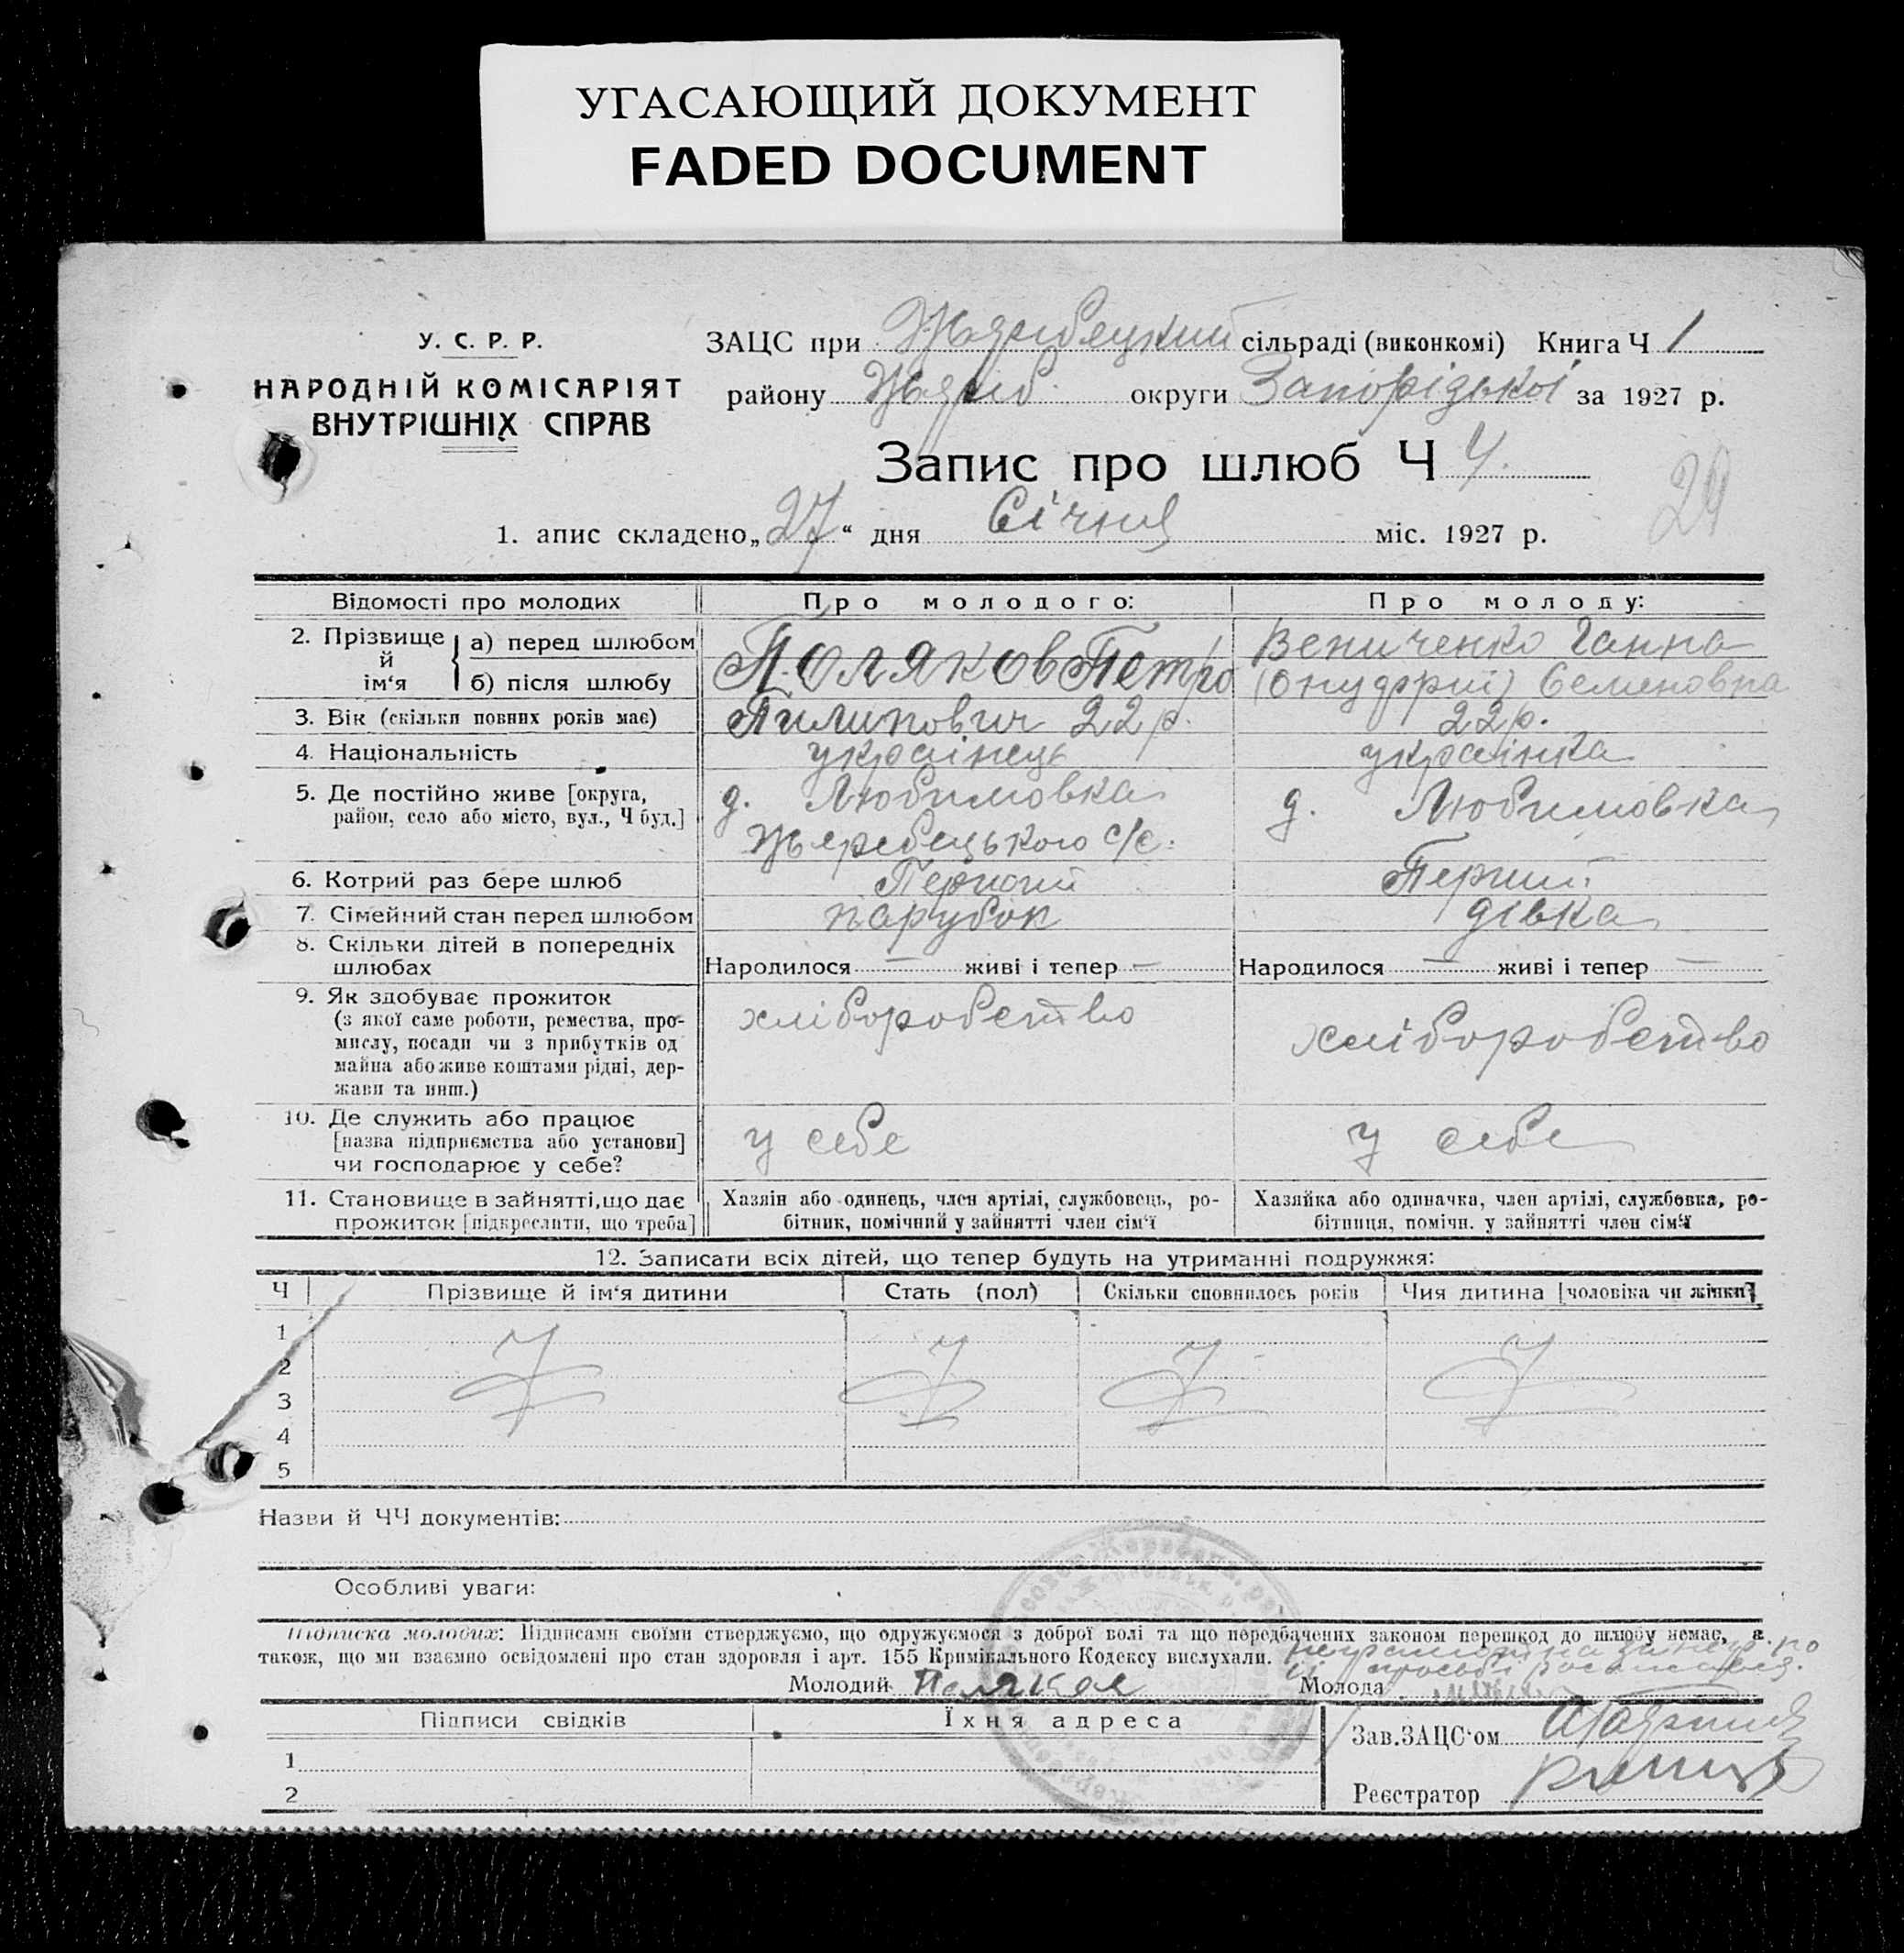 УГАСАЮЩИЙ ДОКУМЕНТ
FADED DOCUMENT
У. С. Р. Р.
НАРОДНІЙ КОМІСАРІЯТ
ВНУТРІШНІХ СПРАВ
ЗАЦС при сільраді (виконкомі) Книга Ч 1
району Жереб. округи Запорізької за 1927 р.
Запис про шлюб Ч 4.
29
1. апис складено „27“ дня Січня міс. 1927 р.
Відомості про молодих
Про молодого:
Про молоду:
2. Прізвище й ім‘я
а) перед шлюбом
б) після шлюбу
Поляков Петро
Ганна
Семеновна
3. Вік (скільки повних років має)
Пилипович 22 р.
22 р.
4. Національність
українець
українка
5. Де постійно живе [округа,
район, село або місто, вул., Ч буд.]
д. Любимовка
Жеребецького с/с.
д. Любимовка
6. Котрий раз бере шлюб
Перший
Перший
7. Сімейний стан перед шлюбом
парубок
дівка
8. Скільки дітей в попередніх
шлюбах
Народилося — живі і тепер —
Народилося — живі і тепер —
9. Як здобуває прожиток
(з якої саме роботи, ремества, про-
мислу, посади чи з прибутків од
майна або живе коштами рідні, дер-
жави та инш.)
хліборобство
хліборобство
10. Де служить або працює
[назва підприємства або установи]
чи господарює у себе?
у себе
у себе
11. Становище в зайнятті, що дає
прожиток [підкреслити, що треба]
Хазяїн або одинець, член артілі, службовець, ро-
бітник, помічний у зайнятті член сім‘ї
Хазяйка або одиначка, член артілі, службовка, ро-
бітниця, помічн. у зайнятті член сім‘ї
12. Записати всіх дітей, що тепер будуть на утриманні подружжя:
Ч
Прізвище й ім‘я дитини
Стать (пол)
Скільки сповнилось років
Чия дитина [чоловіка чи жінки]
1
2
3
4
5
Назви й ЧЧ документів:
Особливі уваги:
Підписка молодих: Підписами своїми стверджуємо, що одружуємося з доброї волі та що передбачених законом перешкод до шлюбу немає, а
також, що ми взаємно освідомлені про стан здоровля і арт. 155 Кримікального Кодексу вислухали.
Молодий Поляков
Молода
Підписи свідків
Їхня адреса
Зав. ЗАЦС‘ом
1
2
Реєстратор